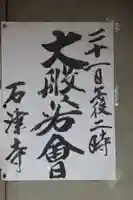 二十一日午後一時
大般若會
石津寺